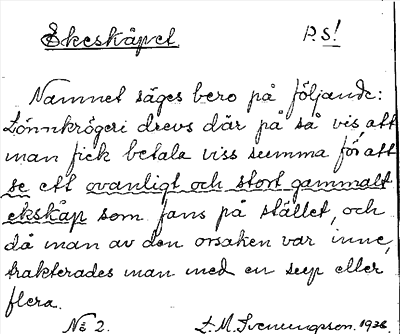 Ekeskåpet P.S!
Namnet säges bero på följande:
Lönnkrögeri drevs där på så vis, att
man fick betala viss summa för att
se ett ovanligt och stort gammalt
ekskåp som fans på stället, och
då man av den orsaken var inne,
trakterades man med en sup eller
flera.
No 2. L. M. Svenungson. 1926.